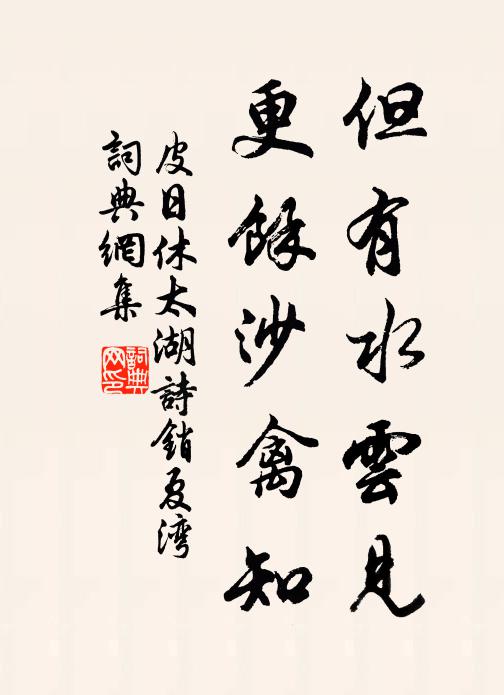 但有水雲見
更餘沙禽知
皮日休太湖詩銷夏灣
詞典網集
詞典
网印